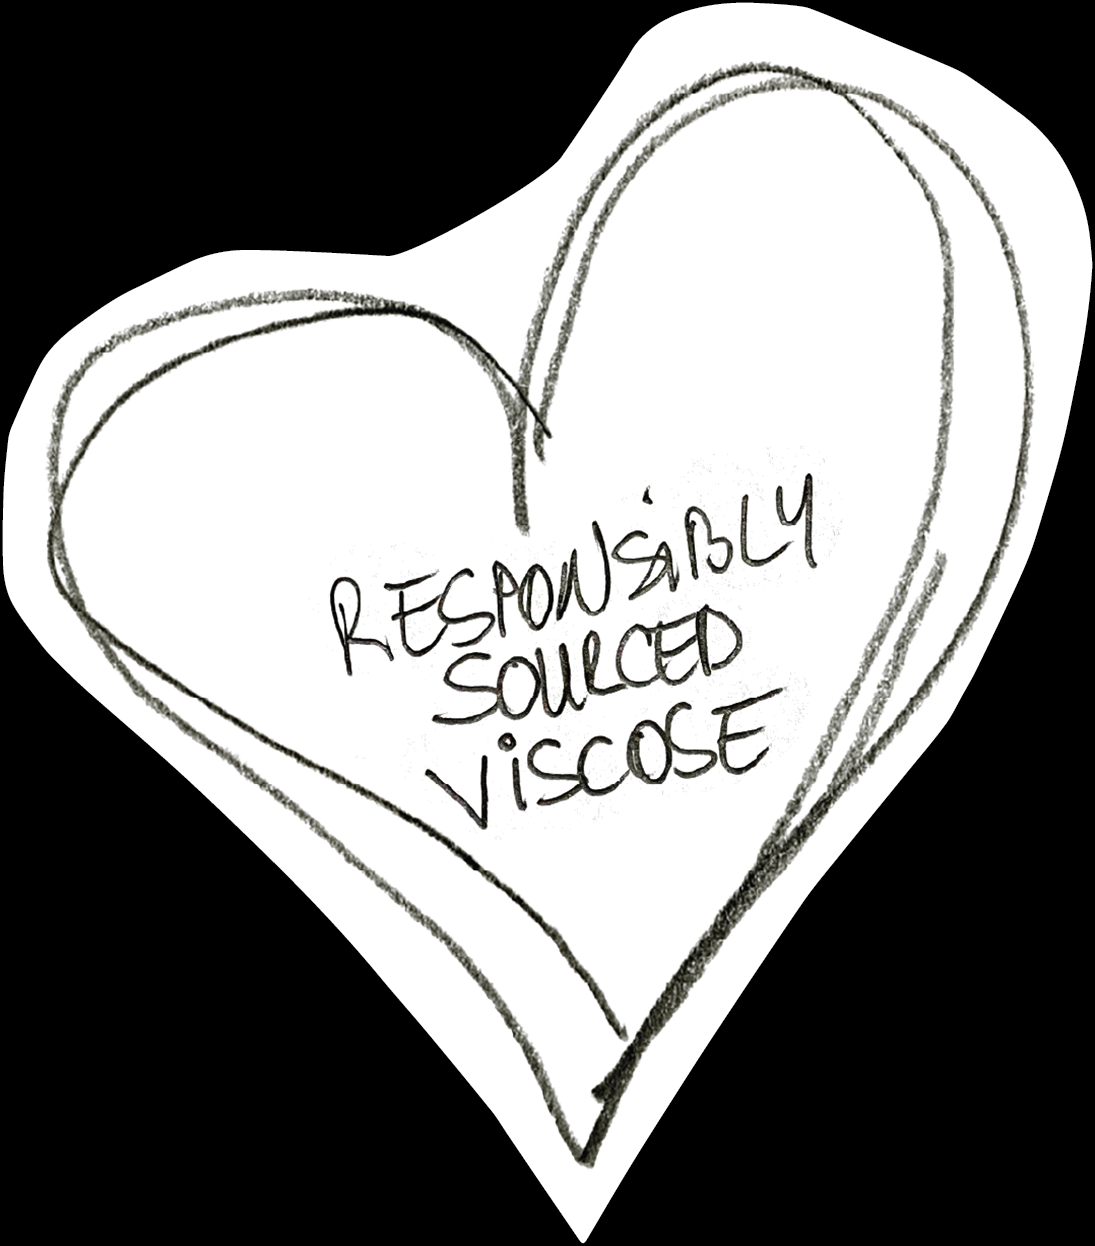 RESPONSiBLY
SOURCED
ViSCOSE